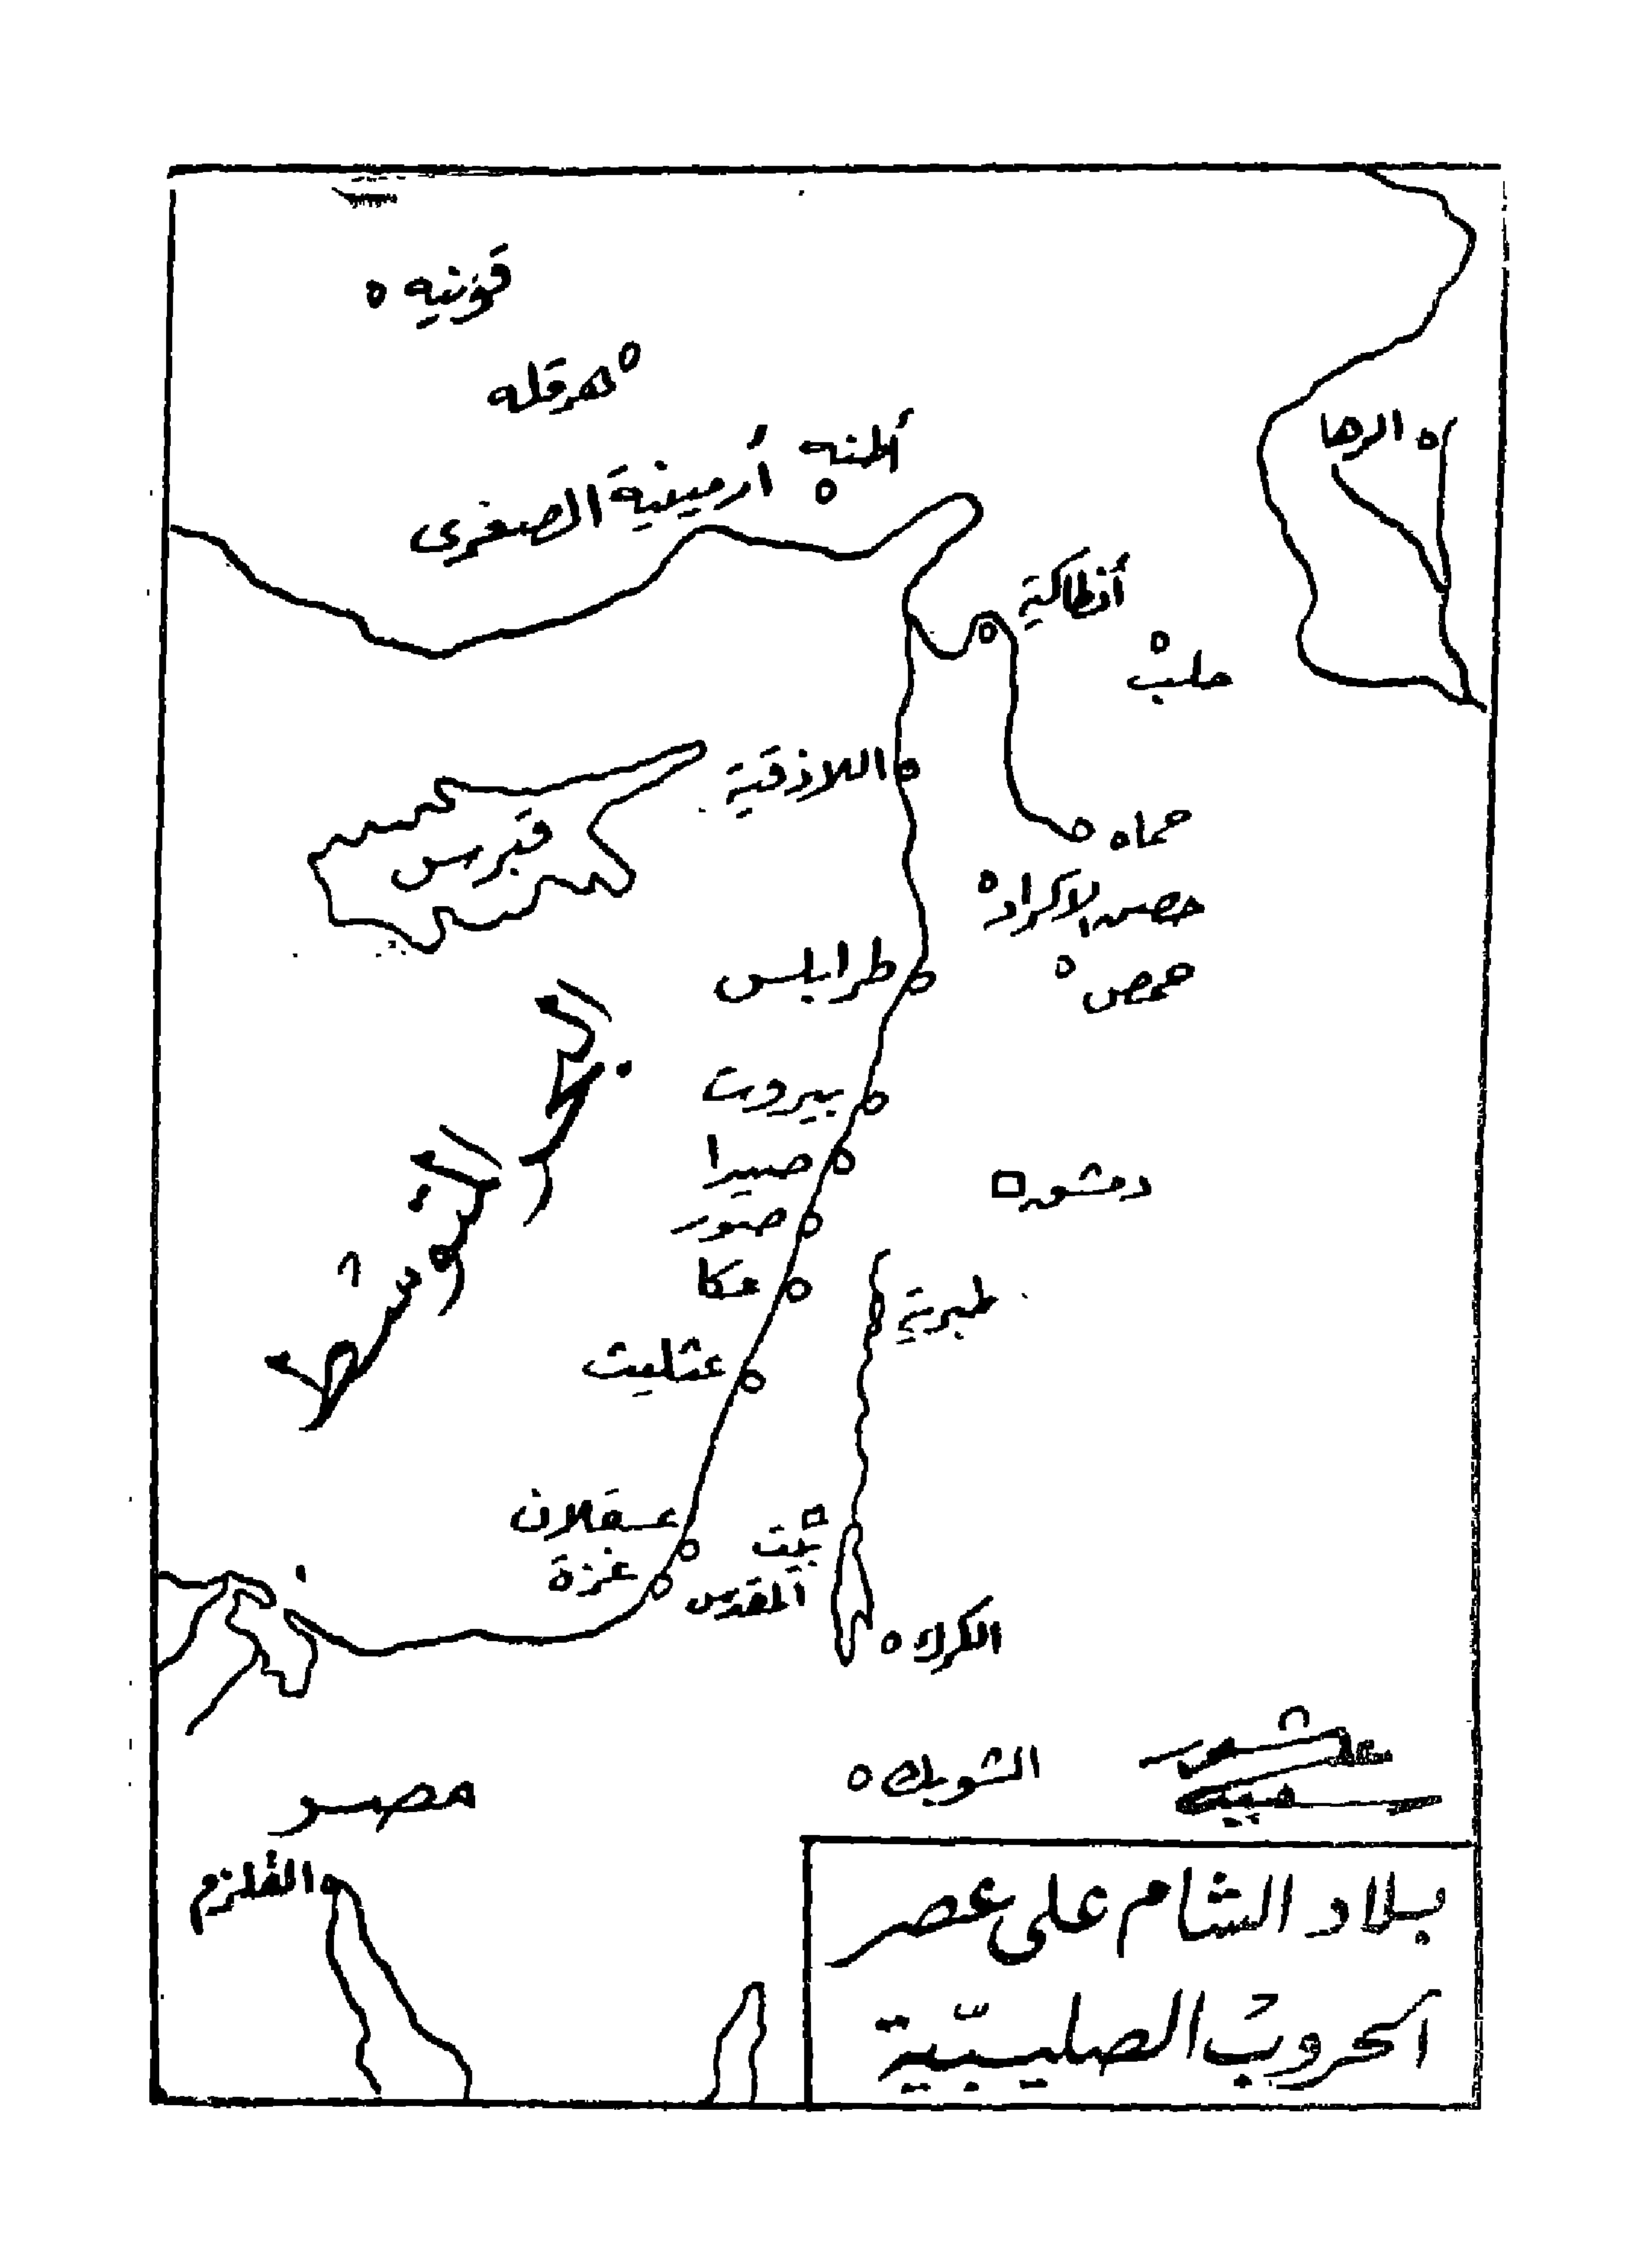 قونيه
هرقله
أطنه
أرمينية الصغرى
الرها
أنطاكية
حلب
اللاذقية
قبرس
حماه
حصن الاكراد
حمص
طرابلس
البحر المتوسط
بيروت
صيدا
دمشق
صور
عكا
طبرية
عثليت
عسقلان
غزة
بيت
المقدس
الكرك
الشوبك
مصر
القلزم
بلاد الشام على عصر
الحروب الصليبية